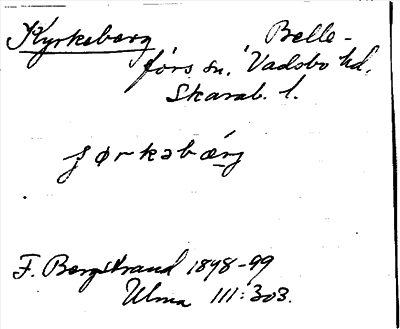 Kyrkeberg Belle-
fors sn. Vadsbo hd.
Skarab. l.
ʃørkəbærg
F. Bergstrand 1898-99
Ulma 111:303.